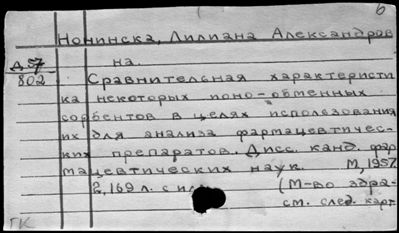 6
Нонинска, Лилиана Александров
на.
Д 57
802
Сравнительная характеристи
ка некоторых ионо-обменных
сорбентов в целях использования
их для анализа фармацевтичес-
ких препаратов. Дисс. канд. фар
мацевтических наук. М, 1957.
2, 169 л. с ил. (М-во здра-
см. след. карт
ГК